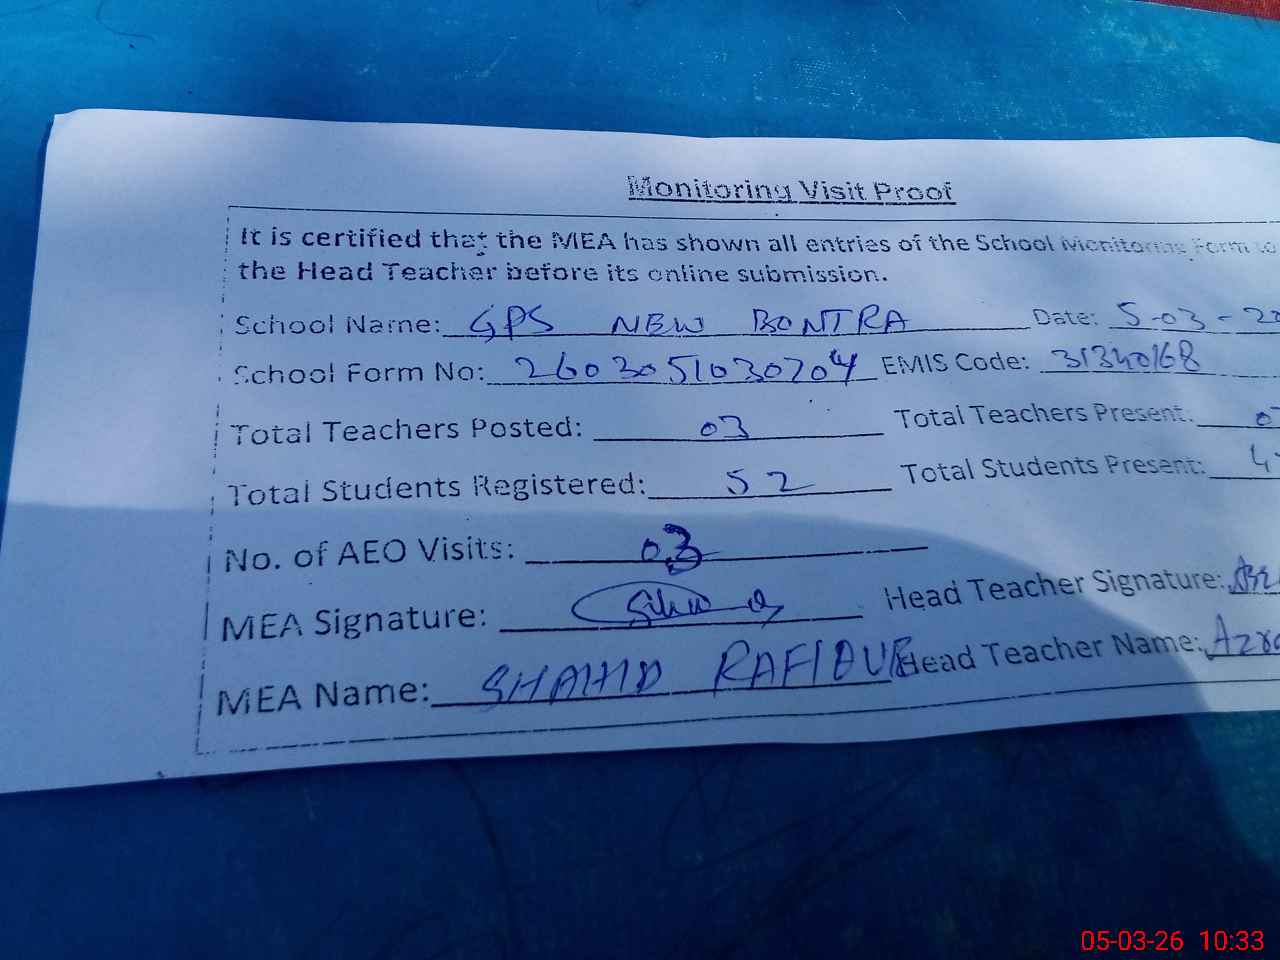 Monitoring Visit Proof
It is certified that the MEA has shown all entries of the School Monitoring Form to
the Head Teacher before its online submission.
School Name: GPS NEW BONTRA Date: 5-03-20
School Form No: 2603051030704 EMIS Code: 31340168
Total Teachers Posted: 03 Total Teachers Present:
Total Students Registered: 52 Total Students Present: 4
No. of AEO Visits: 03
MEA Signature: Head Teacher Signature:
MEA Name: SHAHID RAFIQUE Head Teacher Name: Azra
05-03-26 10:33